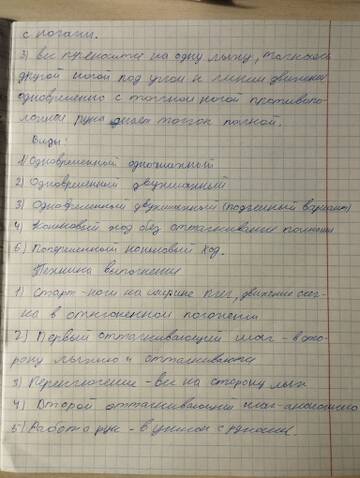 с ногами.
3) вес переносится на одну лыжу, толчком
другой ногой под углом к линии движения
одновременно с толчком ногой противопо-
ложная рука делает толчок палкой.
Виды:
1) Одновременный одношажный
2) Одновременный двухшажный
3) Одновременный двухшажный (подъемный вариант)
4) Коньковый ход без отталкивания палками
6) Попеременный коньковый ход.
Техника выполнения
1) Старт - ноги на ширине плеч, движение
на в отклоненном положении
2) Первый отталкивающий шаг - в сто-
рону лыжню и отталкиваюся
3) Переключение - вес на сторону лыж
4) Второй отталкивающий шаг - аналогично
5) Работа рук - в унисон с ногами.